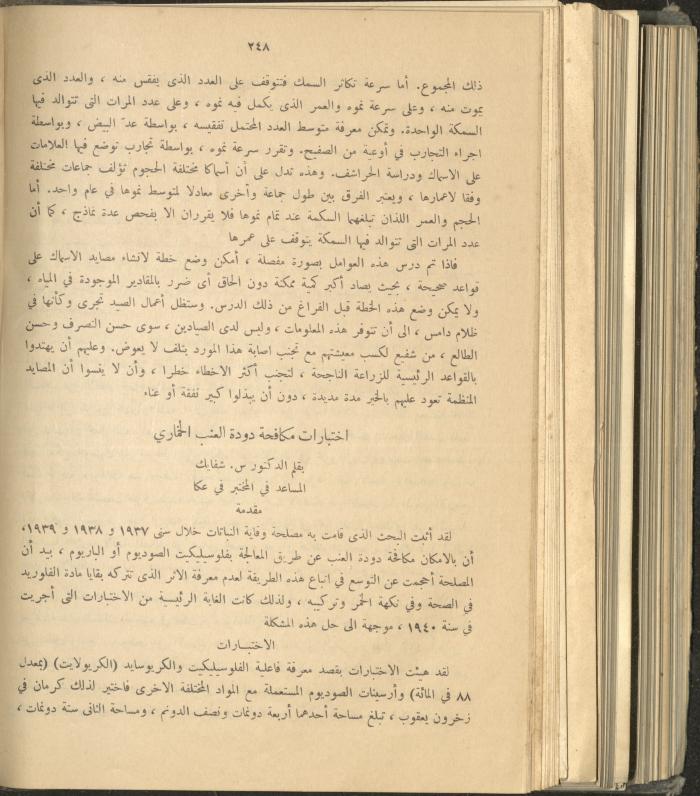 ٢٤٨
ذلك المجموع. أما سرعة تكاثر السمك فتتوقف على العدد الذى يفقس منه ، والعدد الذى
يموت منه ، وعلى سرعة نموه والعمر الذى يكمل فيه نموه ، وعلى عدد المرات التى تتوالد فيها
السمكة الواحدة. ويمكن معرفة متوسط العدد المحتمل تفقيسه ، بواسطة عد البيض ، وبواسطة
اجراء التجارب في أوعية من الصفيح. وتقرر سرعة نموه ، بواسطة تجارب توضع فيها العلامات
على الاسماك ودراسة الحراشف. وهذه تدل على أن أسماكا مختلفة الحجوم تؤلف جماعات مختلفة
وفقا لاعمارها ، ويعتبر الفرق بين طول جماعة وأخرى معادلا لمتوسط نموها في عام واحد. أما
الحجم والعمر اللذان تبلغهما السكمة عند تمام نموها فلا يقرران الا بفحص عدة نماذج ، كما أن
عدد المرات التى تتوالد فيها السمكة يتوقف على عمرها
فاذا تم درس هذه العوامل بصورة مفصلة ، أمكن وضع خطة لانشاء مصايد الاسماك على
قواعد صحيحة ، بحيث يصاد أكبر كمية ممكنة دون الحاق أى ضرر بالمقادير الموجودة في المياه ،
ولا يمكن وضع هذه الخطة قبل الفراغ من ذلك الدرس. وستظل أعمال الصيد تجرى وكأنها في
ظلام دامس ، الى أن تتوفر هذه المعلومات ، وليس لدى الصيادين ، سوى حسن التصرف وحسن
الطالع ، من شفيع لكسب معيشتهم مع تجنب اصابة هذا المورد بتلف لا يعوض. وعليهم أن يهتدوا
بالقواعد الرئيسية للزراعة الناجحة ، لتجنب أكثر الاخطاء خطرا ، وأن لا ينسوا أن المصايد
المنظمة تعود عليهم بالخير مدة مديدة ، دون أن يبذلوا كبير نفقة أو عناء
اختبارات مكافحة دودة العنب الخماري
بقلم الدكتور س. شفايك
المساعد في المختبر في عكا
مقدمة
لقد أثبت البحث الذى قامت به مصلحة وقاية النباتات خلال سنى ١٩٣٧ و ١٩٣٨ و ١٩٣٩،
أن بالامكان مكافحة دودة العنب عن طريق المعالجة بفلوسيليكيت الصوديوم أو الباريوم ، بيد أن
المصلحة أحجمت عن التوسع في اتباع هذه الطريقة لعدم معرفة الاثر الذى تتركه بقايا مادة الفلوريد
في الصحة وفي نكهة الخمر وتركيبه ، ولذلك كانت الغاية الرئيسية من الاختبارات التى أجريت
في سنة ١٩٤٠ ، موجهة الى حل هذه المشكلة
الاختبـارات
لقد هيئت الاختبارات بقصد معرفة فاعلية الفلوسيليكيت والكريوسايد (الكريولايت) (بمعدل
٨٨ في المائة) وأرسينات الصوديوم المستعملة مع المواد المختلفة الاخرى فاختير لذلك كرمان في
زخرون يعقوب ، تبلغ مساحة أحدهما أربعة دونمات ونصف الدونم ، ومساحة الثانى ستة دونمات ،